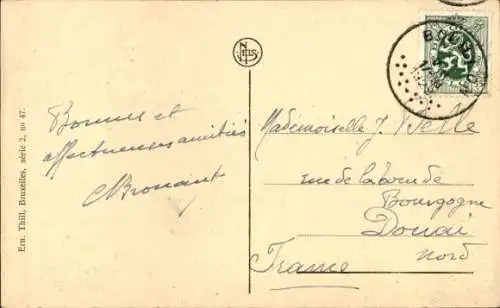 Ern. Thill, Bruxelles, série 2, no 47.
NELS
Bonnes et
affectueuses amitiés
Mademoiselle J. Belle
rue de la
Bourgogne
Douai
Nord
France